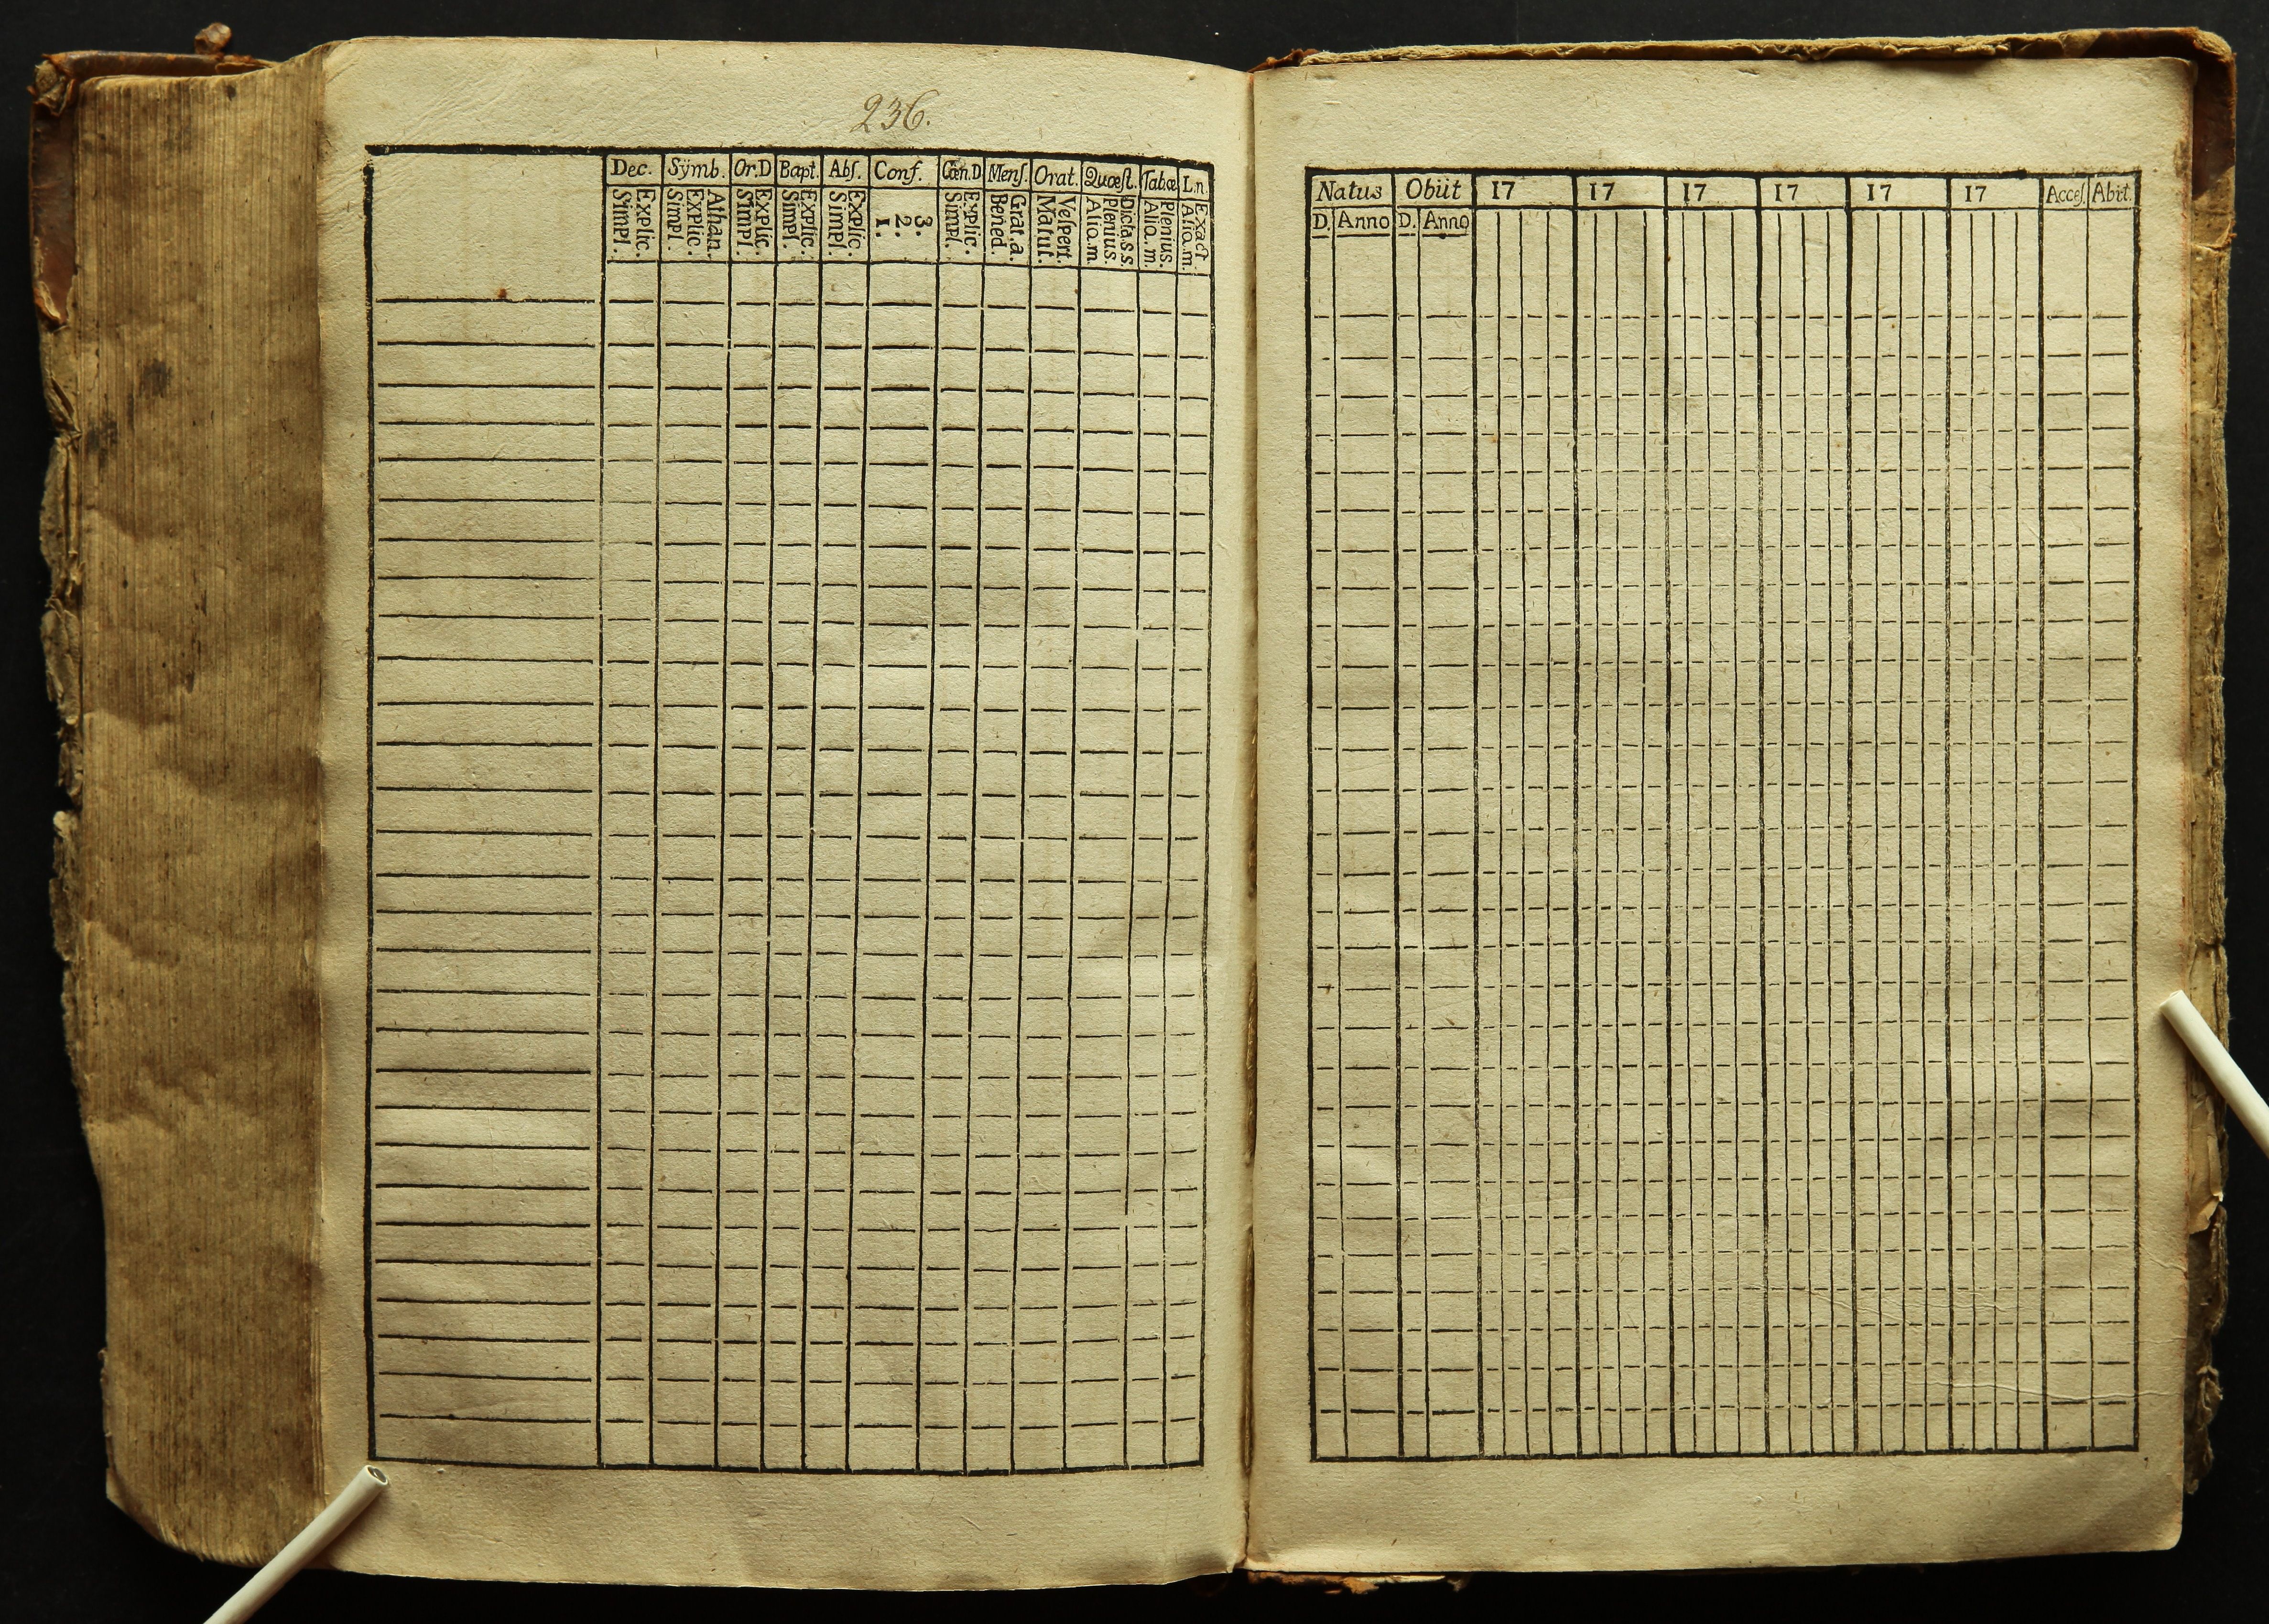 236.
Dec. Sÿmb. Or.D Bapt. Abſ. Conf. Cœn.D Menſ. Orat. Quæſt. Tab.œ L.n.
Explic. Simpl. Athan. Explic. Simpl. Explic. Simpl. Explic. Simpl. Explic. Simpl. 3. 2. 1. Explic. Simpl. Grat.a. Bened. Veſpert. Matut. Dicta.s.s. Plenius. Aliq.m Plenius. Aliq.m. Exact Aliq.m.
Natus Obiit 17 17 17 17 17 17 Acceſ. Abiit.
D. Anno D. Anno